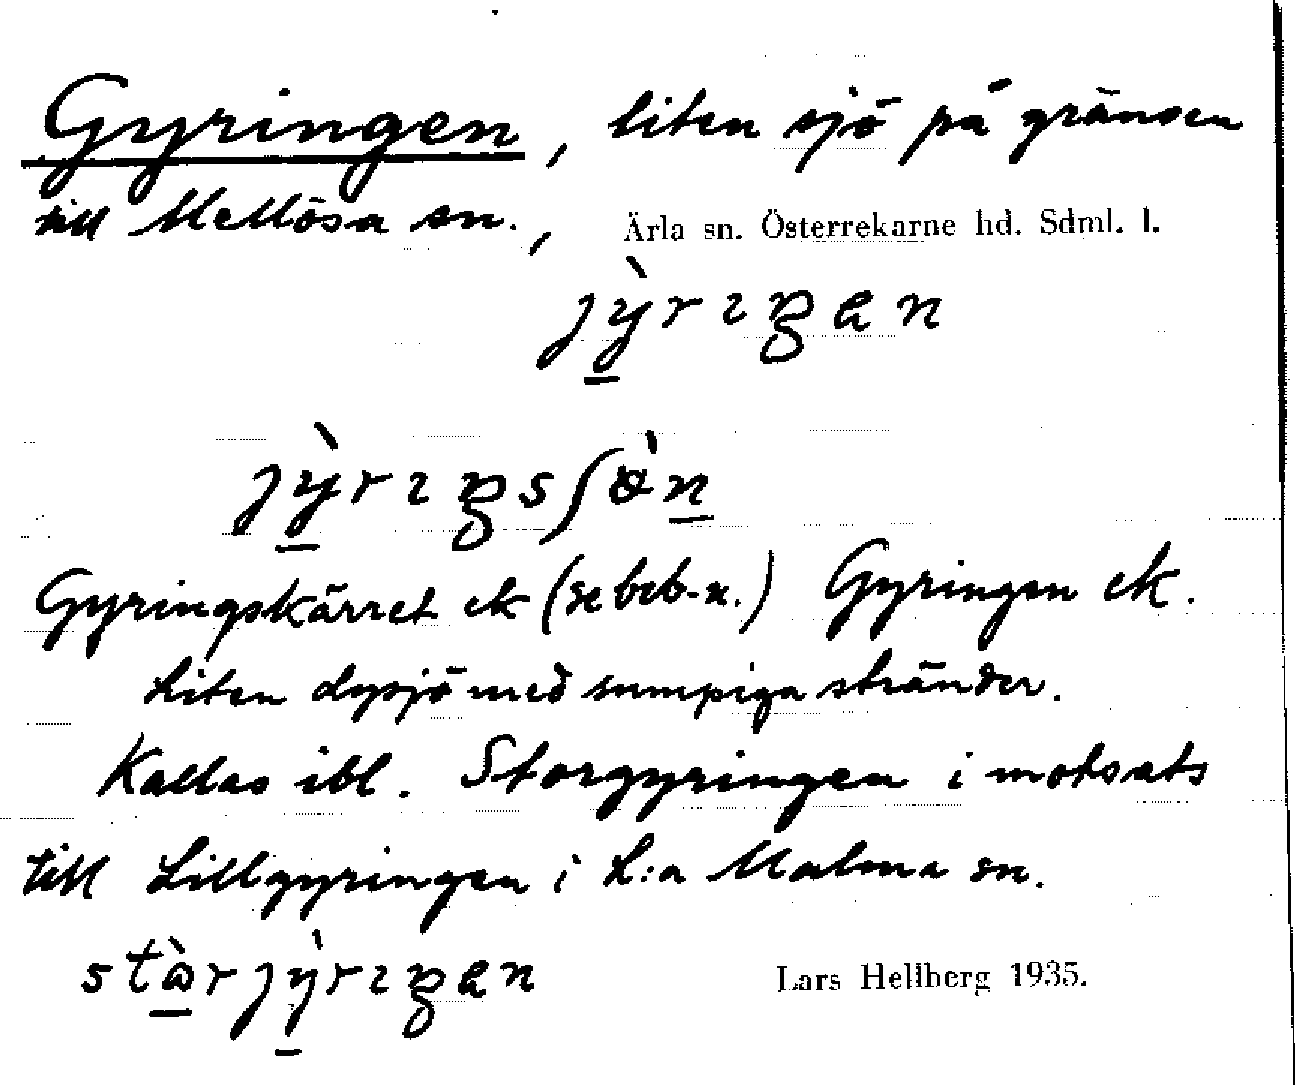 Gyringen, liten sjö på gränsen
till Mellösa sn., Ärla sn. Österrekarne hd. Sdml. l.
Gyringskärret ek (se beb-n.) Gyringen ek.
Liten dysjö med sumpiga stränder.
Kallas ibl. Storgyringen i motsats
till Lillgyringen i L:a Malma sn.
Lars Hellberg 1935.